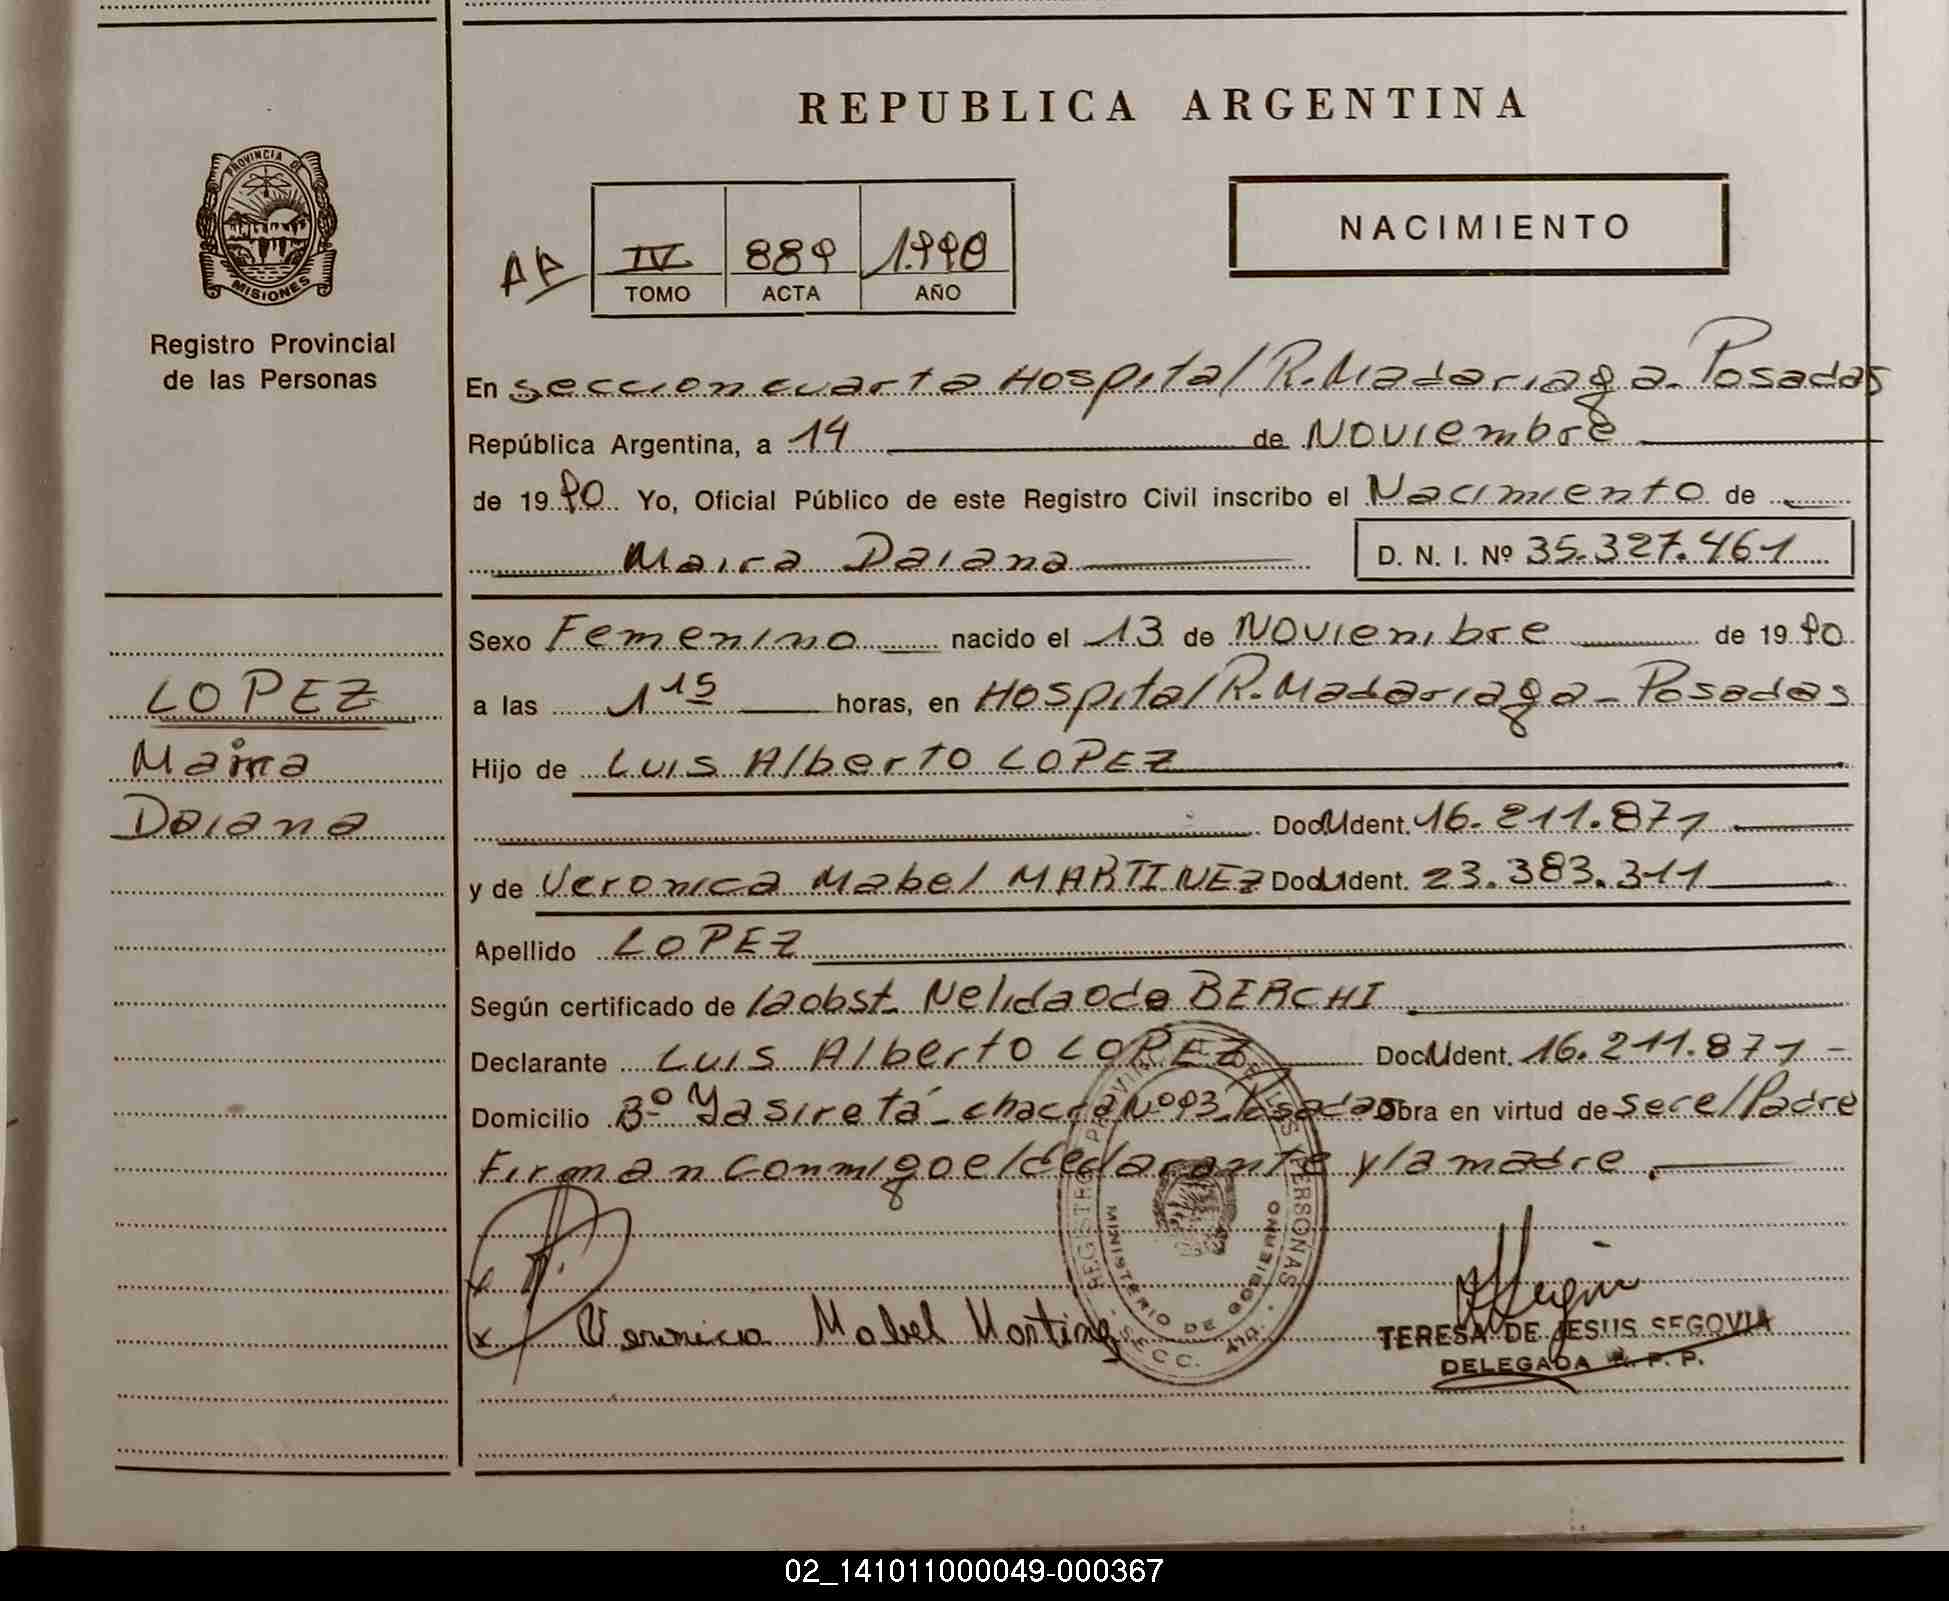 REPUBLICA ARGENTINA
NACIMIENTO
PROVINCIA DE
MISIONES
Registro Provincial
de las Personas
IV 889 1.990
TOMO ACTA AÑO
En seccion cuarta Hospital R. Madariaga - Posadas
República Argentina, a 14 de Noviembre
de 1990 Yo, Oficial Público de este Registro Civil inscribo el Nacimiento de
Maira Daiana D. N. I. Nº 35.327.461
Sexo Femenino nacido el 13 de Noviembre de 1990
a las 1 15 horas, en Hospital R. Madariaga - Posadas
LOPEZ
Maira
Daiana
Hijo de Luis Alberto LOPEZ
Doc. Ident. 16.211.871
y de Veronica Mabel MARTINEZ Doc. Ident. 23.383.311
Apellido LOPEZ
Según certificado de la obst. Nelida O de BERCHI
Declarante Luis Alberto LOPEZ Doc. Ident. 16.211.871 -
Domicilio Bº Yasiretá - chacra Nº 93 Posadas Obra en virtud de ser el Padre
Firman conmigo el declarante y la madre.
REGISTRO PROVINCIAL DE LAS PERSONAS
MINISTERIO DE GOBIERNO
SECC. 4TA.
x
x Veronica Mabel Martinez
TERESA DE JESUS SEGOVIA
DELEGADA R. P. P.
02_141011000049-000367